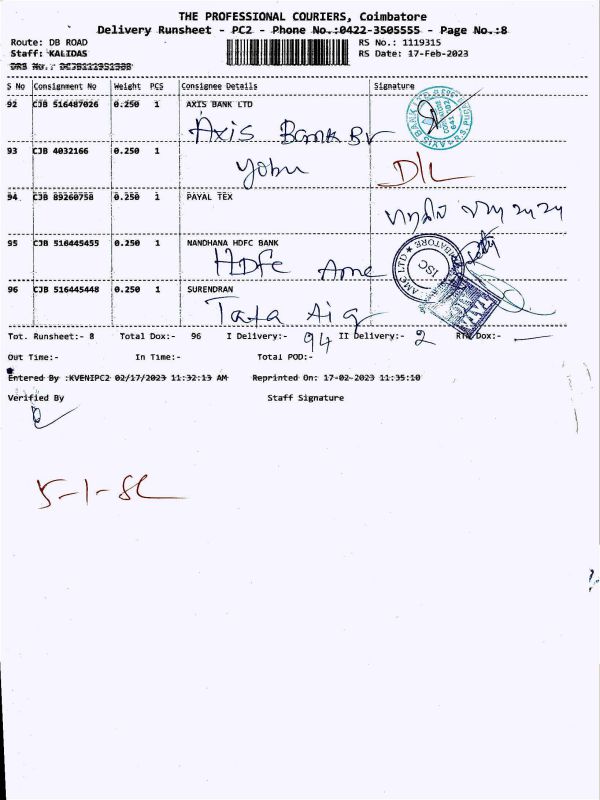 THE PROFESSIONAL COURIERS, Coimbatore
Delivery Runsheet - PC2 - Phone No.:0422-3505555 - Page No.:8
Route: DB ROAD RS No.: 1119315
Staff: KALIDAS RS Date: 17-Feb-2023
S No Consignment No Weight PCS Consignee Details Signature
92 CJB 516487026 0.250 1 AXIS BANK LTD
Axis Bank Br
93 CJB 4032166 0.250 1
D/L
94 CJB 89260758 0.250 1 PAYAL TEX
95 CJB 516445455 0.250 1 NANDHANA HDFC BANK
HDFC Amc
96 CJB 516445448 0.250 1 SURENDRAN
Tata Aig
Tot. Runsheet:- 8 Total Dox:- 96 I Delivery:- 94 II Delivery:- 2 RTO Dox:- —
Out Time:- In Time:- Total POD:-
Entered By :KVENIPC2 02/17/2023 11:32:13 AM Reprinted On: 17-02-2023 11:35:10
Verified By Staff Signature